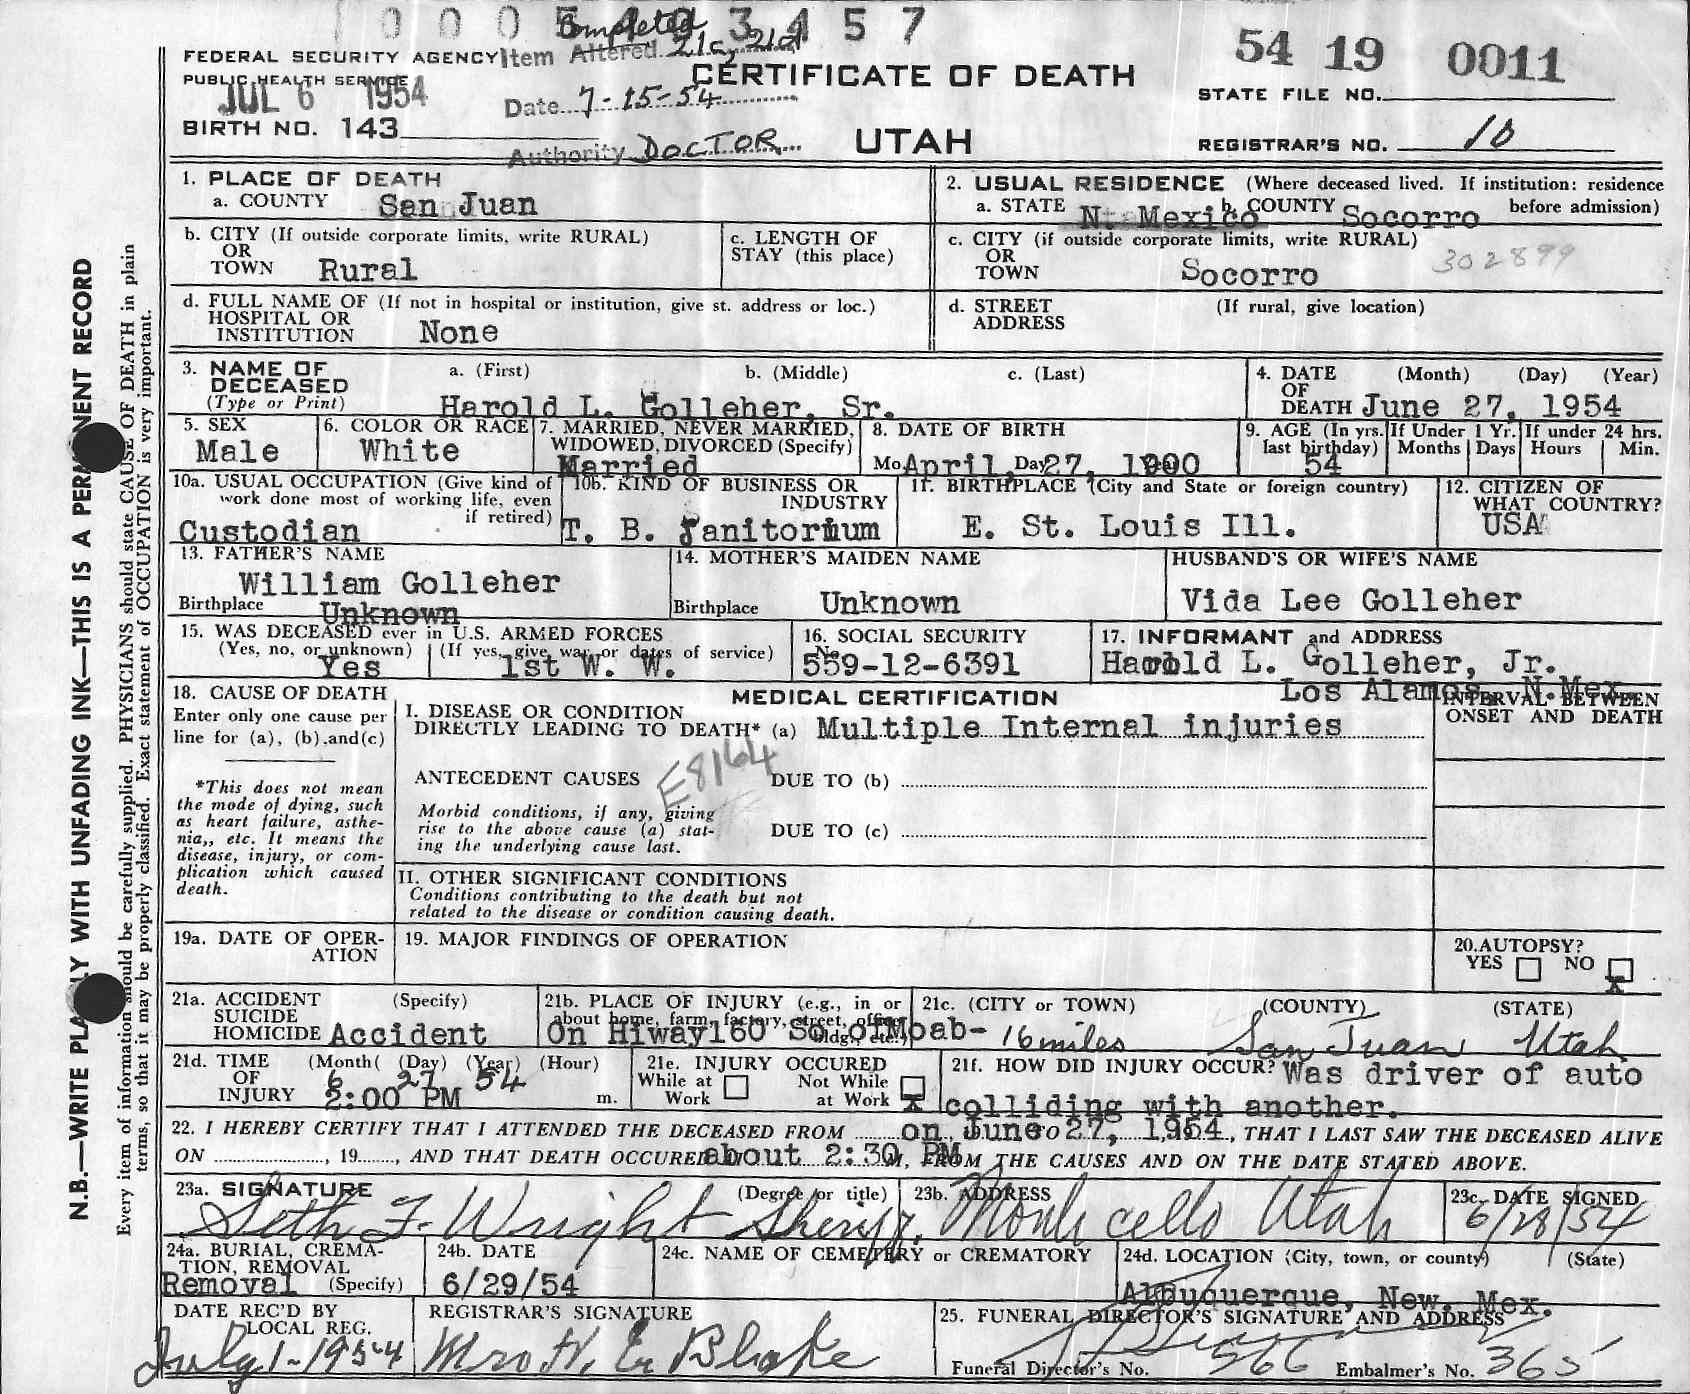 0005403457
Completed
FEDERAL SECURITY AGENCY Item Altered 21c, 21d
PUBLIC HEALTH SERVICE
JUL 6 1954
CERTIFICATE OF DEATH
54 19 0011
STATE FILE NO.
Date 7-15-54
BIRTH NO. 143
Authority DOCTOR
UTAH
REGISTRAR'S NO. 10
N.B.—WRITE PLAINLY WITH UNFADING INK—THIS IS A PERMANENT RECORD
Every item of information should be carefully supplied. PHYSICIANS should state CAUSE OF DEATH in plain
terms, so that it may be properly classified. Exact statement of OCCUPATION is very important.
1. PLACE OF DEATH
a. COUNTY San Juan
2. USUAL RESIDENCE (Where deceased lived. If institution: residence
a. STATE N. Mexico b. COUNTY Socorro before admission)
b. CITY (If outside corporate limits, write RURAL)
OR
TOWN Rural
c. LENGTH OF
STAY (this place)
c. CITY (if outside corporate limits, write RURAL)
OR
TOWN Socorro
302899
d. FULL NAME OF (If not in hospital or institution, give st. address or loc.)
HOSPITAL OR
INSTITUTION None
d. STREET (If rural, give location)
ADDRESS
3. NAME OF a. (First) b. (Middle) c. (Last)
DECEASED
(Type or Print) Harold L. Golleher, Sr.
4. DATE (Month) (Day) (Year)
OF
DEATH June 27, 1954
5. SEX
Male
6. COLOR OR RACE
White
7. MARRIED, NEVER MARRIED,
WIDOWED, DIVORCED (Specify)
Married
8. DATE OF BIRTH
Mo April Day 27, 1900
9. AGE (In yrs.
last birthday)
54
If Under 1 Yr.
Months Days
If under 24 hrs.
Hours Min.
10a. USUAL OCCUPATION (Give kind of
work done most of working life, even
if retired)
Custodian
10b. KIND OF BUSINESS OR
INDUSTRY
T. B. Sanitorium
11. BIRTHPLACE (City and State or foreign country)
E. St. Louis Ill.
12. CITIZEN OF
WHAT COUNTRY?
USA
13. FATHER'S NAME
William Golleher
Birthplace Unknown
14. MOTHER'S MAIDEN NAME
Birthplace Unknown
HUSBAND'S OR WIFE'S NAME
Vida Lee Golleher
15. WAS DECEASED ever in U.S. ARMED FORCES
(Yes, no, or unknown) (If yes, give war or dates of service)
Yes 1st W. W.
16. SOCIAL SECURITY
No.
559-12-6391
17. INFORMANT and ADDRESS
Harold L. Golleher, Jr.
Los Alamos, N.Mex.
18. CAUSE OF DEATH
Enter only one cause per
line for (a), (b), and (c)
*This does not mean
the mode of dying, such
as heart failure, asthe-
nia,, etc. It means the
disease, injury, or com-
plication which caused
death.
MEDICAL CERTIFICATION
INTERVAL BETWEEN
ONSET AND DEATH
I. DISEASE OR CONDITION
DIRECTLY LEADING TO DEATH* (a) Multiple Internal injuries
E8164
ANTECEDENT CAUSES DUE TO (b)
Morbid conditions, if any, giving
rise to the above cause (a) stat-
ing the underlying cause last.
DUE TO (c)
II. OTHER SIGNIFICANT CONDITIONS
Conditions contributing to the death but not
related to the disease or condition causing death.
19a. DATE OF OPER-
ATION
19. MAJOR FINDINGS OF OPERATION
20. AUTOPSY?
YES NO X
21a. ACCIDENT (Specify)
SUICIDE
HOMICIDE Accident
21b. PLACE OF INJURY (e.g., in or
about home, farm, factory, street, office
bldg., etc.)
On Hiway 160 So. of Moab-
21c. (CITY or TOWN) (COUNTY) (STATE)
16 miles San Juan Utah
21d. TIME (Month) (Day) (Year) (Hour)
OF
INJURY 6 27 54
2:00 PM m.
21e. INJURY OCCURED
While at Work
Not While at Work X
21f. HOW DID INJURY OCCUR? Was driver of auto
colliding with another.
22. I HEREBY CERTIFY THAT I ATTENDED THE DECEASED FROM on June TO 27, 1954, THAT I LAST SAW THE DECEASED ALIVE
ON , 19 , AND THAT DEATH OCCURED about 2:30 PM M, FROM THE CAUSES AND ON THE DATE STATED ABOVE.
23a. SIGNATURE (Degree or title)
Seth F. Wright Sheriff.
23b. ADDRESS
Monticello Utah
23c. DATE SIGNED
6/28/54
24a. BURIAL, CREMA-
TION, REMOVAL
Removal (Specify)
24b. DATE
6/29/54
24c. NAME OF CEMETERY or CREMATORY
24d. LOCATION (City, town, or county) (State)
Albuquerque, New. Mex.
DATE REC'D BY
LOCAL REG.
July 1-1954
REGISTRAR'S SIGNATURE
Mrs H. E. Blake
25. FUNERAL DIRECTOR'S SIGNATURE AND ADDRESS
Funeral Director's No. 566 Embalmer's No. 365